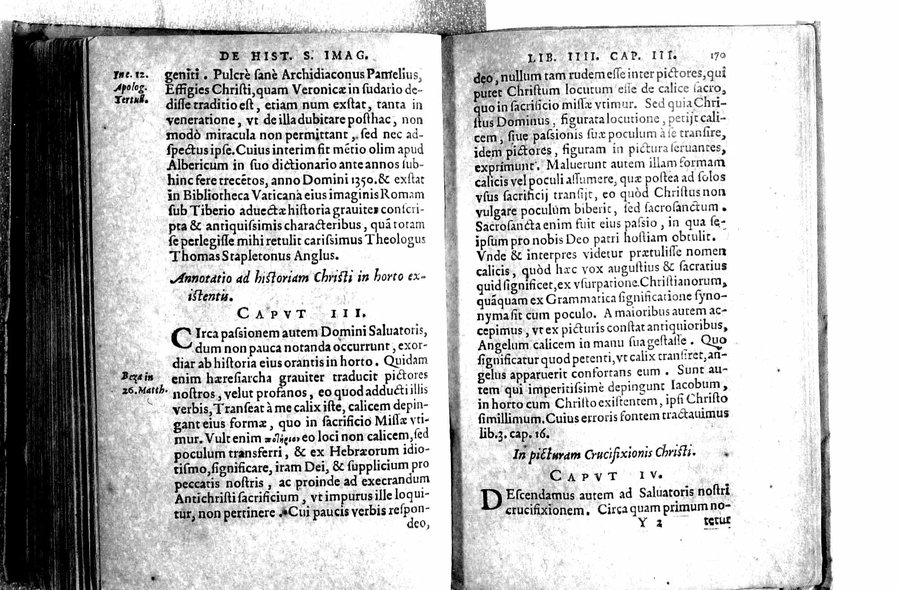 DE HIST. S. IMAG.
Inc. 12.
Apolog.
Tertull.
geniti. Pulcrè sanè Archidiaconus Pamelius,
Effigies Christi, quam Veronicæ in sudario de-
disse traditio est, etiam num exstat, tanta in
veneratione, vt de illa dubitare posthac, non
modò miracula non permittant, sed nec ad-
spectus ipse. Cuius interim fit mẽtio olim apud
Albericum in suo dictionario ante annos sub-
hinc fere trecẽtos, anno Domini 1350. & exstat
in Bibliotheca Vaticana eius imaginis Romam
sub Tiberio aduectæ historia grauiter conscri-
pta & antiquissimis characteribus, quã totam
se perlegisse mihi retulit carissimus Theologus
Thomas Stapletonus Anglus.
Annotatio ad historiam Christi in horto ex-
istentis.
CAPVT III.
CIrca passionem autem Domini Saluatoris,
dum non pauca notanda occurrunt, exor-
diar ab historia eius orantis in horto. Quidam
Beza in
26. Matth.
enim hæresiarcha grauiter traducit pictores
nostros, velut profanos, eo quod adducti illis
verbis, Transeat à me calix iste, calicem depin-
gant eius formæ, quo in sacrificio Missæ vti-
mur. Vult enim ποτήριον eo loci non calicem, sed
poculum transferri, & ex Hebræorum idio-
tismo, significare, iram Dei, & supplicium pro
peccatis nostris, ac proinde ad execrandum
Antichristi sacrificium, vt impurus ille loqui-
tur, non pertinere. Cui paucis verbis respon-
deo,
LIB. IIII. CAP. III. 170
deo, nullum tam rudem esse inter pictores, qui
putet Christum locutum esse de calice sacro,
quo in sacrificio missæ vtimur. Sed quia Chri-
stus Dominus, figurata locutione, petijt cali-
cem, siue passionis suæ poculum à se transire,
idem pictores, figuram in pictura seruantes,
exprimunt. Maluerunt autem illam formam
calicis vel poculi assumere, quæ postea ad solos
vsus sacrificij transijt, eo quòd Christus non
vulgare poculum biberit, sed sacrosanctum.
Sacrosancta enim fuit eius passio, in qua se-
ipsum pro nobis Deo patri hostiam obtulit.
Vnde & interpres videtur prætulisse nomen
calicis, quòd hæc vox augustius & sacratius
quid significet, ex vsurpatione Christianorum,
quãquam ex Grammatica significatione syno-
nyma sit cum poculo. A maioribus autem ac-
cepimus, vt ex picturis constat antiquioribus,
Angelum calicem in manu sua gestasse. Quo
significatur quod petenti, vt calix transiret, an-
gelus apparuerit confortans eum. Sunt au-
tem qui imperitissimè depingunt Iacobum,
in horto cum Christo existentem, ipsi Christo
simillimum. Cuius erroris fontem tractauimus
lib. 3. cap. 16.
In picturam Crucifixionis Christi.
CAPVT IV.
DEscendamus autem ad Saluatoris nostri
crucifixionem. Circa quam primum no-
Y 2 tetur